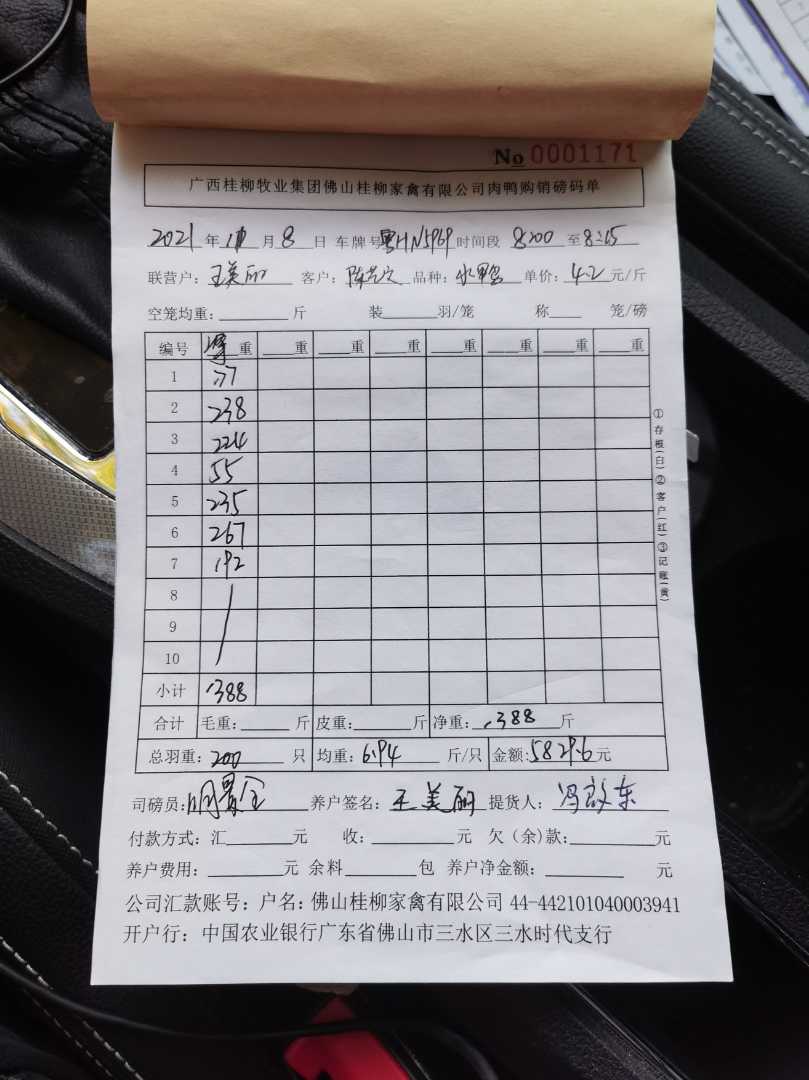 No 0001171
广西桂柳牧业集团佛山桂柳家禽有限公司肉鸭购销磅码单
2021年 11 月 8 日 车牌号 粤HN5969 时间段 8:00 至 8:15
联营户：王美丽 客户：陈 品种：水鸭 单价：4.2 元/斤
空笼均重：______斤 装______羽/笼 称____笼/磅
编号 净重 ____重 ____重 ____重 ____重 ____重 ____重 ____重
1 177
2 238
3 224
4 55
5 235
6 267
7 192
8
9
10
小计 1388
合计 毛重：______斤 皮重：______斤 净重：1388 斤
总羽重：200 只 均重：6.94 斤/只 金额：5829.6元
司磅员： 养户签名：王美丽 提货人：冯
付款方式：汇______元 收：______元 欠（余）款：______元
养户费用：______元 余料______包 养户净金额：______元
公司汇款账号：户名：佛山桂柳家禽有限公司 44-442101040003941
开户行：中国农业银行广东省佛山市三水区三水时代支行
①存根(白)②客户(红)③记账(黄)